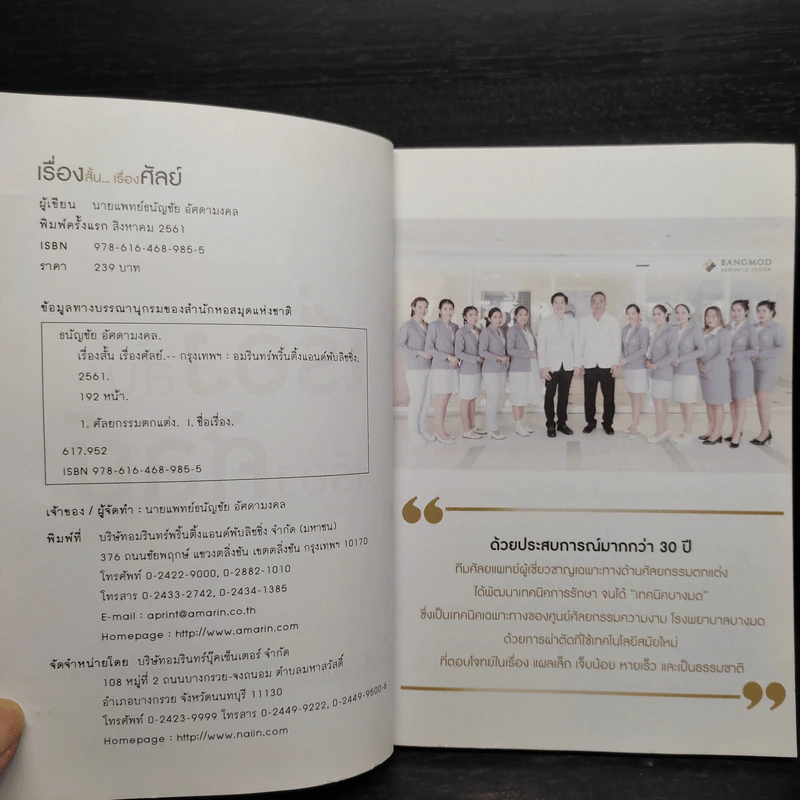 เรื่องสั้น... เรื่องศัลย์
ผู้เขียน นายแพทย์ธนัญชัย อัศดามงคล
พิมพ์ครั้งแรก สิงหาคม 2561
ISBN 978-616-468-985-5
ราคา 239 บาท
ข้อมูลทางบรรณานุกรมของสำนักหอสมุดแห่งชาติ
ธนัญชัย อัศดามงคล.
เรื่องสั้น เรื่องศัลย์.-- กรุงเทพฯ : อมรินทร์พริ้นติ้งแอนด์พับลิชชิ่ง,
2561.
192 หน้า.
1. ศัลยกรรมตกแต่ง. I. ชื่อเรื่อง.
617.952
ISBN 978-616-468-985-5
เจ้าของ / ผู้จัดทำ : นายแพทย์ธนัญชัย อัศดามงคล
พิมพ์ที่ บริษัทอมรินทร์พริ้นติ้งแอนด์พับลิชชิ่ง จำกัด (มหาชน)
376 ถนนชัยพฤกษ์ แขวงตลิ่งชัน เขตตลิ่งชัน กรุงเทพฯ 10170
โทรศัพท์ 0-2422-9000, 0-2882-1010
โทรสาร 0-2433-2742, 0-2434-1385
E-mail : aprint@amarin.co.th
Homepage : http://www.amarin.com
จัดจำหน่ายโดย บริษัทอมรินทร์บุ๊คเซ็นเตอร์ จำกัด
108 หมู่ที่ 2 ถนนบางกรวย-จงถนอม ตำบลมหาสวัสดิ์
อำเภอบางกรวย จังหวัดนนทบุรี 11130
โทรศัพท์ 0-2423-9999 โทรสาร 0-2449-9222, 0-2449-9500-6
Homepage : http://www.naiin.com
BANGMOD
AESTHETIC CENTER
“
ด้วยประสบการณ์มากกว่า 30 ปี
ทีมศัลยแพทย์ผู้เชี่ยวชาญเฉพาะทางด้านศัลยกรรมตกแต่ง
ได้พัฒนาเทคนิคการรักษา จนได้ “เทคนิคบางมด”
ซึ่งเป็นเทคนิคเฉพาะทางของศูนย์ศัลยกรรมความงาม โรงพยาบาลบางมด
ด้วยการผ่าตัดที่ใช้เทคโนโลยีสมัยใหม่
ที่ตอบโจทย์ในเรื่อง แผลเล็ก เจ็บน้อย หายเร็ว และเป็นธรรมชาติ
”